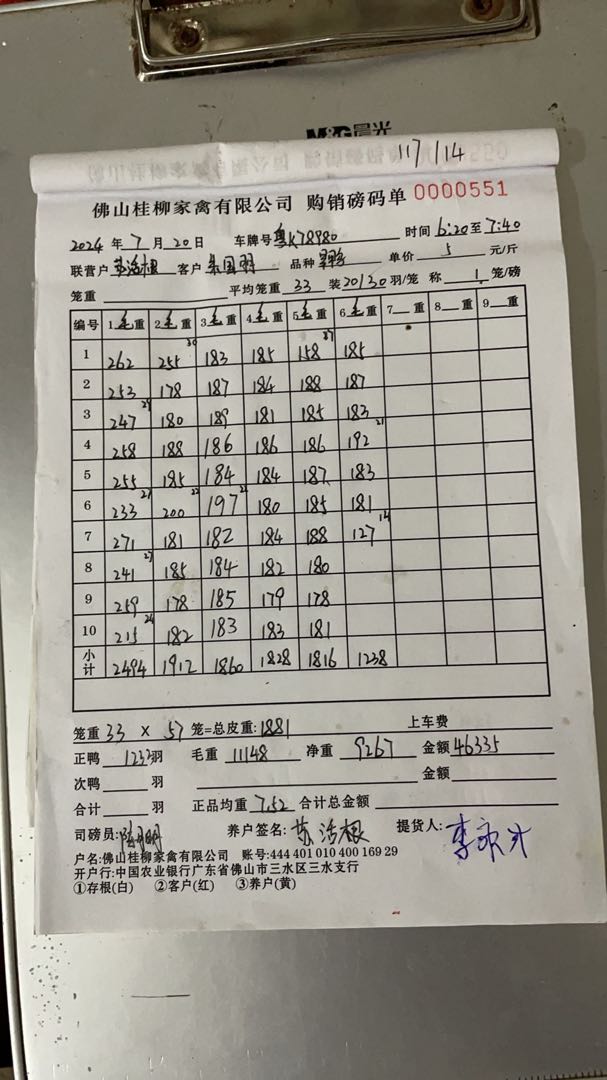 M&G晨光
117/114
佛山桂柳家禽有限公司 购销磅码单 0000551
2024 年 7 月 20 日 车牌号 粤K78980 时间 6:20 至 7:40
联营户 苏活根 客户 品种 单价 5 元/斤
笼重 平均笼重 33 装 20/30 羽/笼 称 1 笼/磅
编号 1 毛 重 2 毛 重 3 毛 重 4 毛 重 5 毛 重 6 毛 重 7 重 8 重 9 重
1 262 255 30 183 185 158 27 185
2 253 178 187 184 188 187
3 247 29 180 189 181 185 183
4 258 188 186 186 186 192 21
5 255 195 184 184 187 183
6 233 27 200 22 197 22 180 185 181
7 271 181 182 184 188 127 14
8 241 27 185 184 182 180
9 259 178 185 179 178
10 215 24 182 183 183 181
小计 2494 1912 1860 1828 1816 1238
笼重 33 × 57 笼=总皮重: 1881 上车费
正鸭 1233 羽 毛重 11148 净重 9267 金额 46335
次鸭 羽 金额
合计 羽 正品均重 7.52 合计总金额
司磅员: 养户签名: 苏活根 提货人:
户名:佛山桂柳家禽有限公司 账号:444 401 010 400 169 29
开户行:中国农业银行广东省佛山市三水区三水支行
①存根(白) ②客户(红) ③养户(黄)